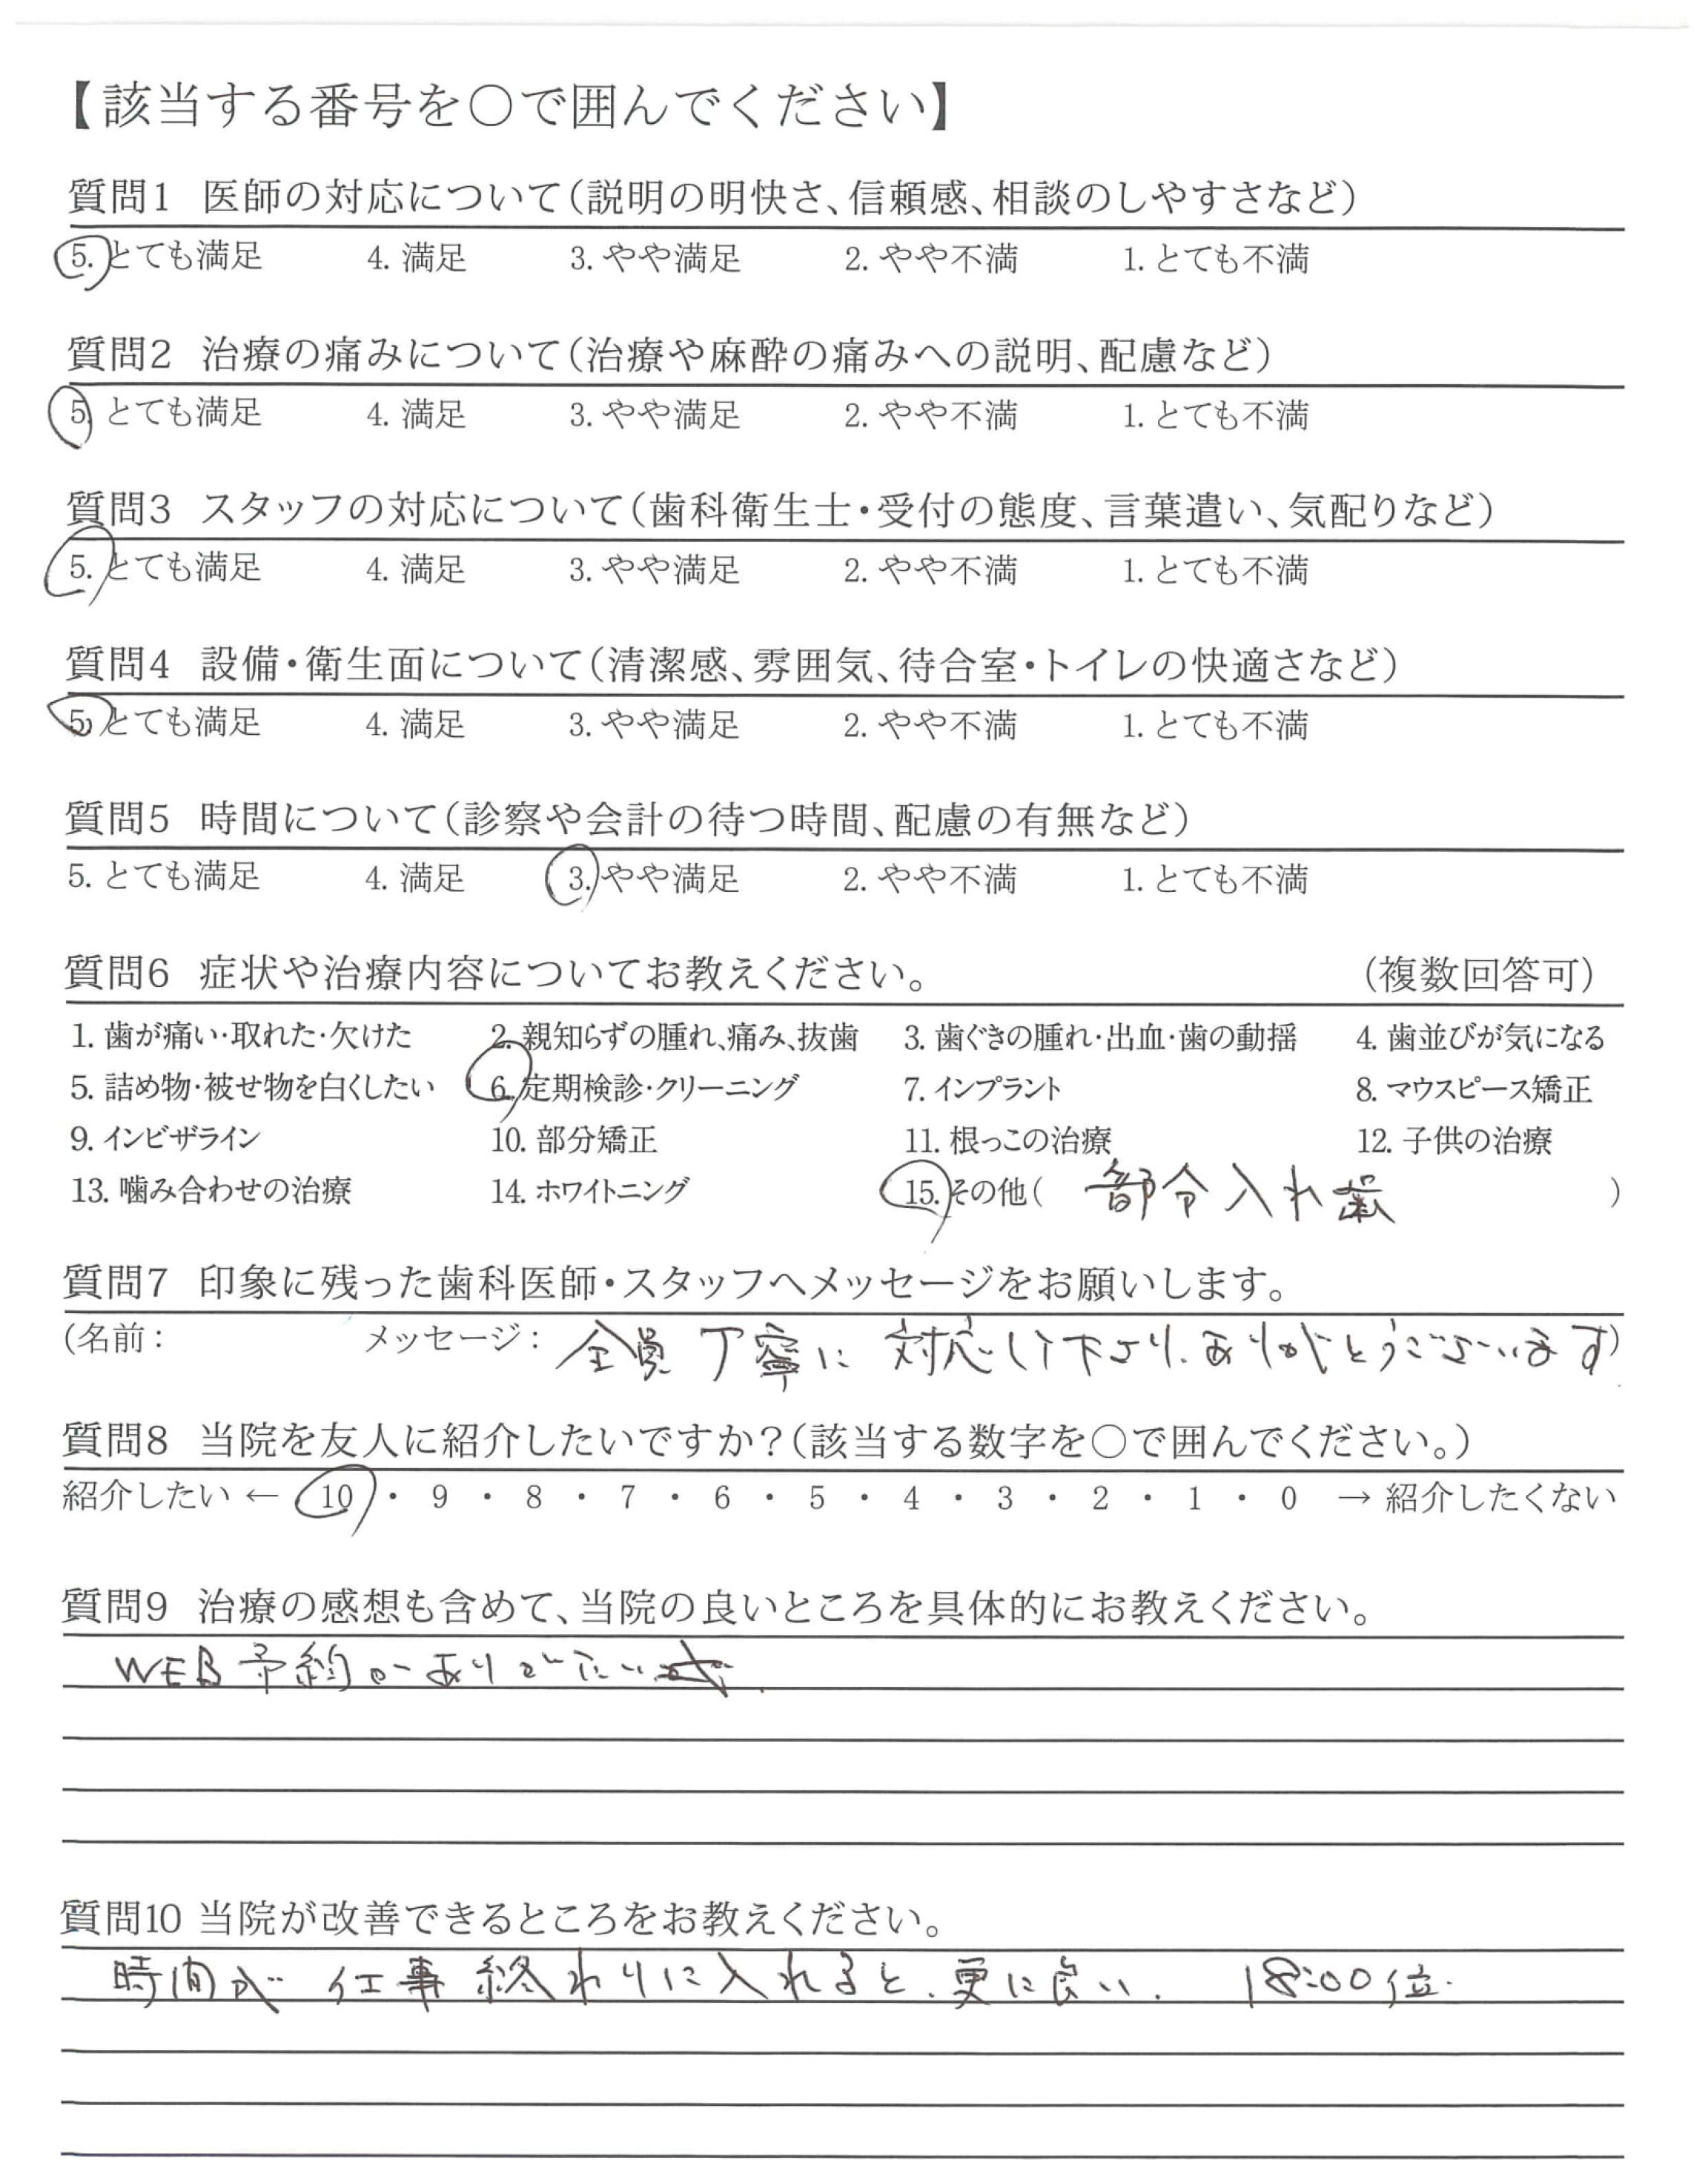 【該当する番号を○で囲んでください】
質問1 医師の対応について（説明の明快さ、信頼感、相談のしやすさなど）
5. とても満足 4. 満足 3. やや満足 2. やや不満 1. とても不満
質問2 治療の痛みについて（治療や麻酔の痛みへの説明、配慮など）
5. とても満足 4. 満足 3. やや満足 2. やや不満 1. とても不満
質問3 スタッフの対応について（歯科衛生士・受付の態度、言葉遣い、気配りなど）
5. とても満足 4. 満足 3. やや満足 2. やや不満 1. とても不満
質問4 設備・衛生面について（清潔感、雰囲気、待合室・トイレの快適さなど）
5. とても満足 4. 満足 3. やや満足 2. やや不満 1. とても不満
質問5 時間について（診察や会計の待つ時間、配慮の有無など）
5. とても満足 4. 満足 3. やや満足 2. やや不満 1. とても不満
質問6 症状や治療内容についてお教えください。 （複数回答可）
1. 歯が痛い・取れた・欠けた 2. 親知らずの腫れ、痛み、抜歯 3. 歯ぐきの腫れ・出血・歯の動揺 4. 歯並びが気になる
5. 詰め物・被せ物を白くしたい 6. 定期検診・クリーニング 7. インプラント 8. マウスピース矯正
9. インビザライン 10. 部分矯正 11. 根っこの治療 12. 子供の治療
13. 噛み合わせの治療 14. ホワイトニング 15. その他（ 部分入れ歯 ）
質問7 印象に残った歯科医師・スタッフへメッセージをお願いします。
（名前： メッセージ： 全員丁寧に対応して下さり、ありがとうございます）
質問8 当院を友人に紹介したいですか？（該当する数字を○で囲んでください。）
紹介したい ← 10 ・ 9 ・ 8 ・ 7 ・ 6 ・ 5 ・ 4 ・ 3 ・ 2 ・ 1 ・ 0 → 紹介したくない
質問9 治療の感想も含めて、当院の良いところを具体的にお教えください。
WEB予約がありがたい
質問10 当院が改善できるところをお教えください。
時間が仕事終わりに入れると、更に良い。 18:00位.